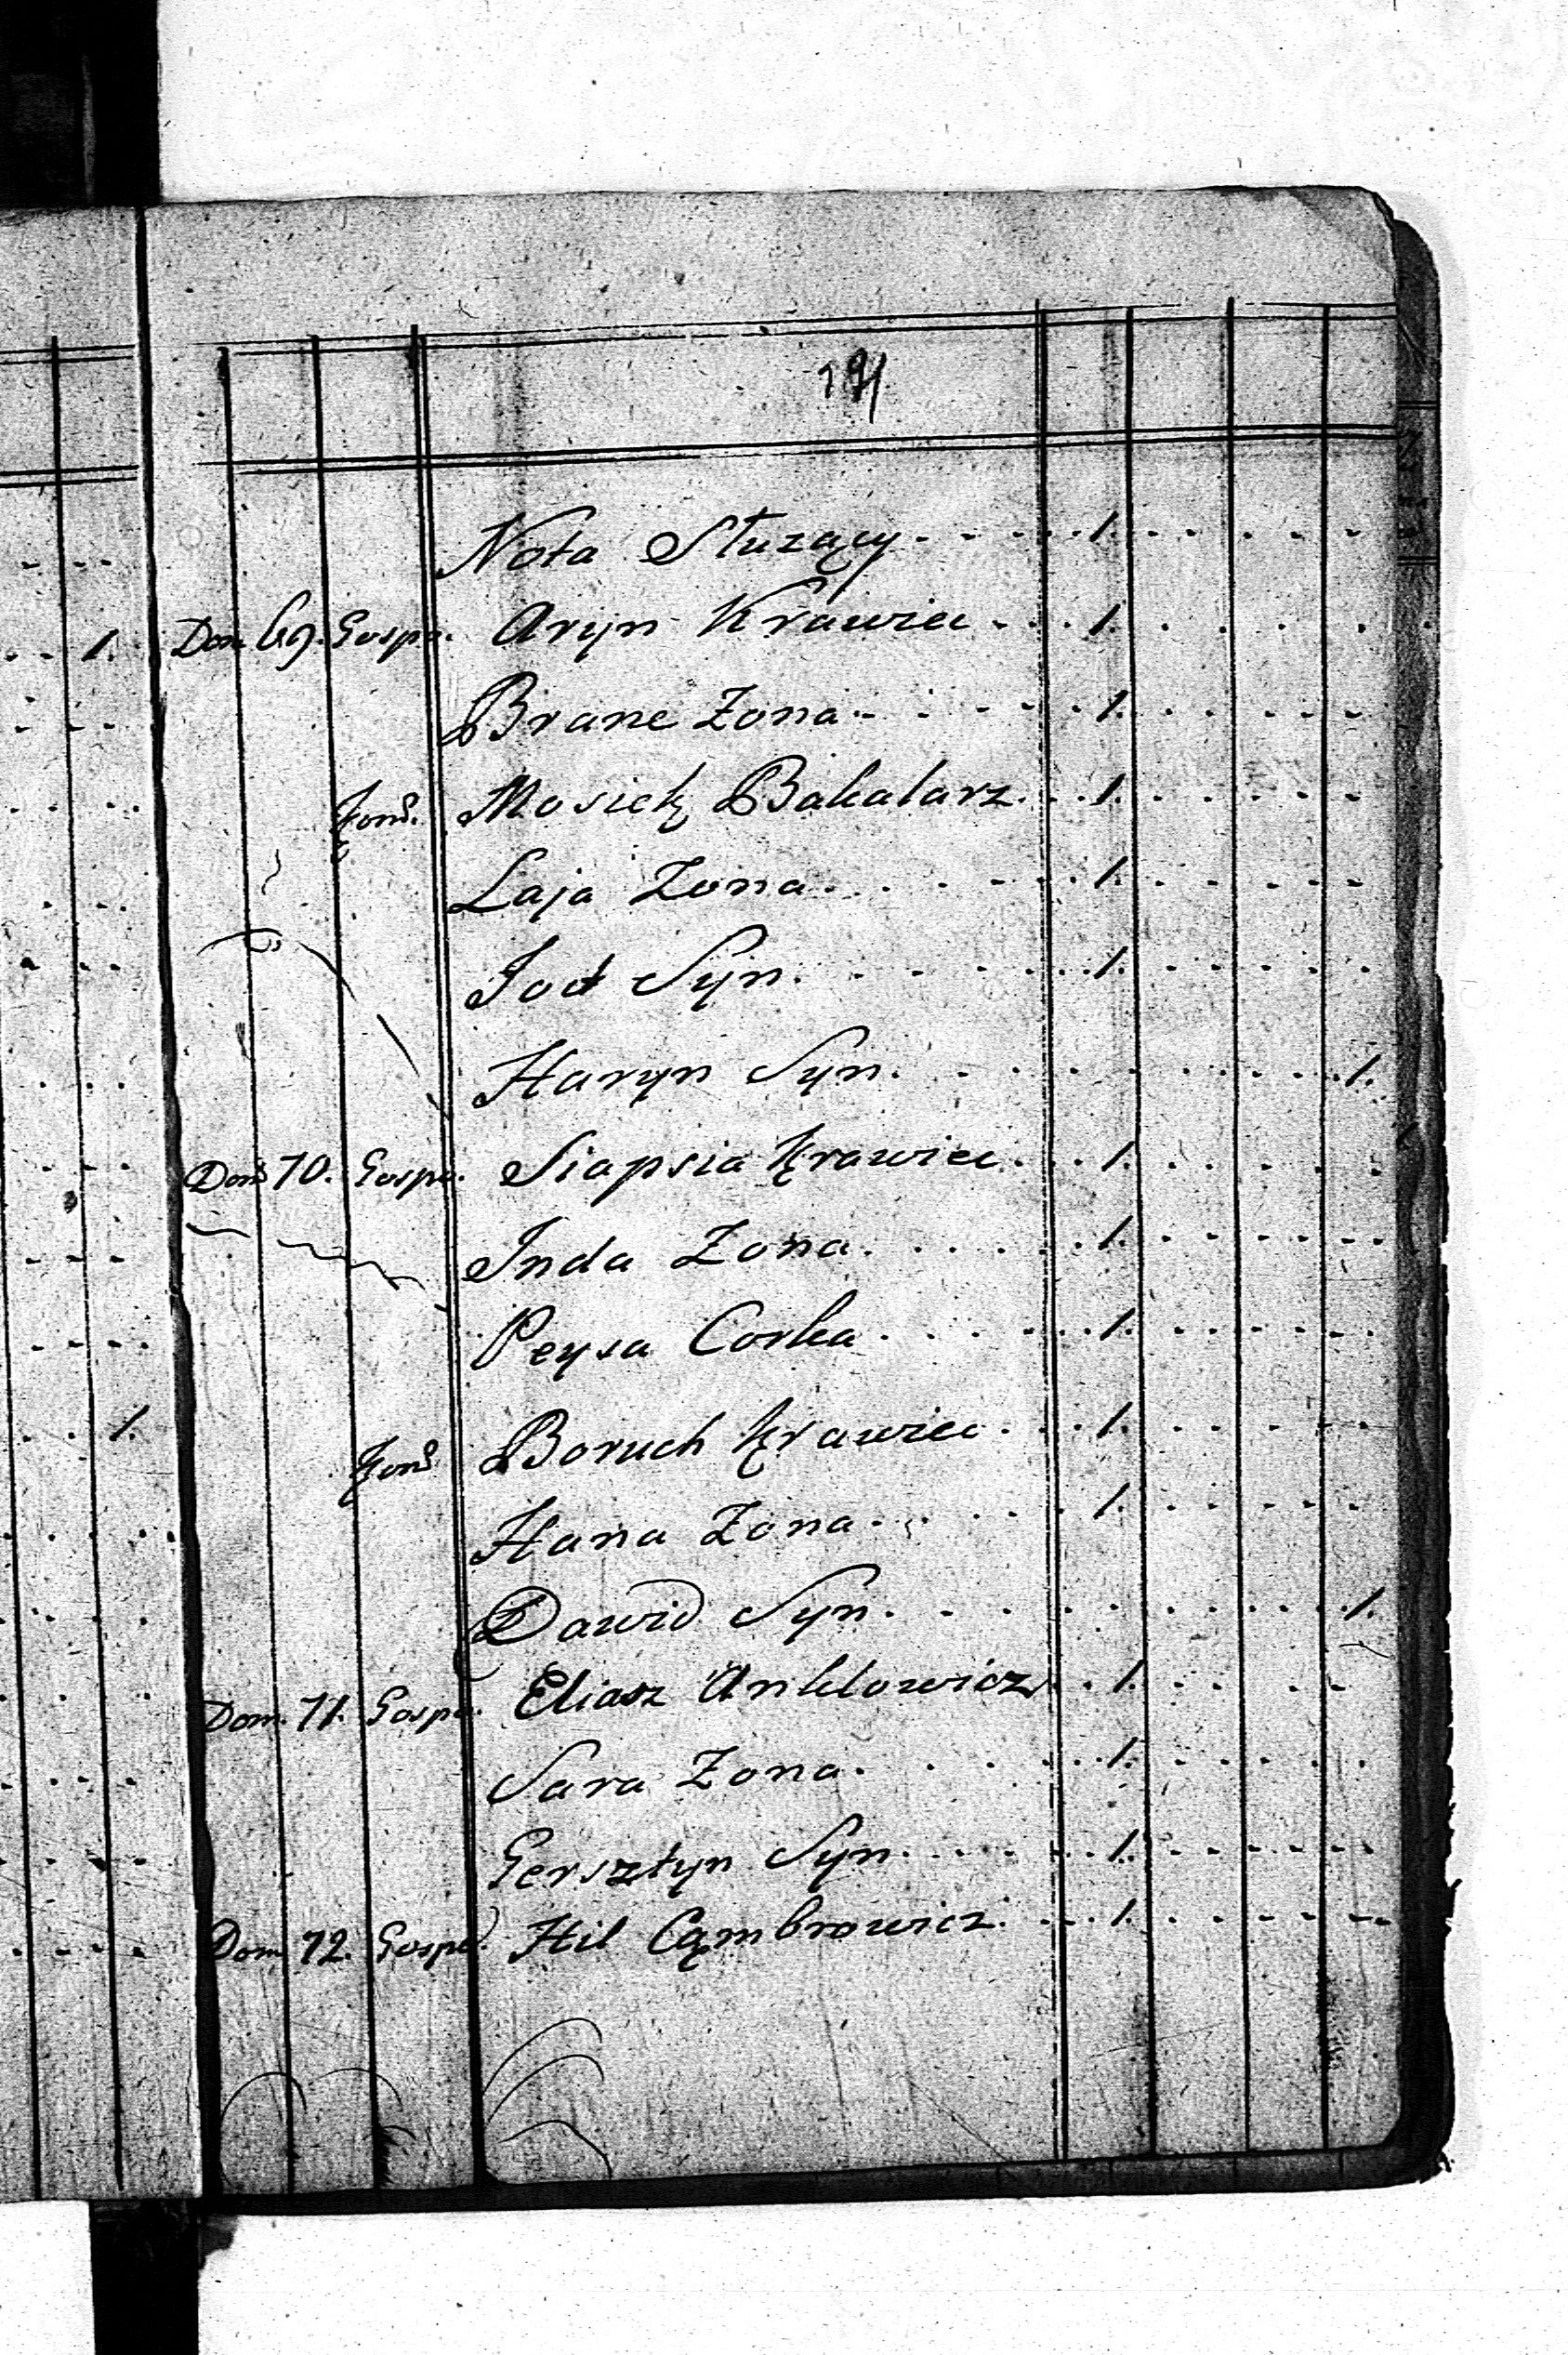 191
Nota Służący 1.
Dom 69. Gospr. Aryn Krawiec 1.
Brane Zona 1.
Kom. Mosiek Bakalarz 1.
Laja Zona 1.
Syn 1.
Haryn Syn 1.
Dom 70. Gospr. Siapsia Krawiec 1.
Inda Zona 1.
Peysa Corka 1.
Kom. Boruch Krawiec 1.
Hana Zona 1.
Dawid Syn 1.
Dom. 71. Gospr. Eliasz Anklowicz 1.
Sara Zona 1.
Gersztyn Syn 1.
Dom 72. Gospr. Hil Cąmbrowicz 1.